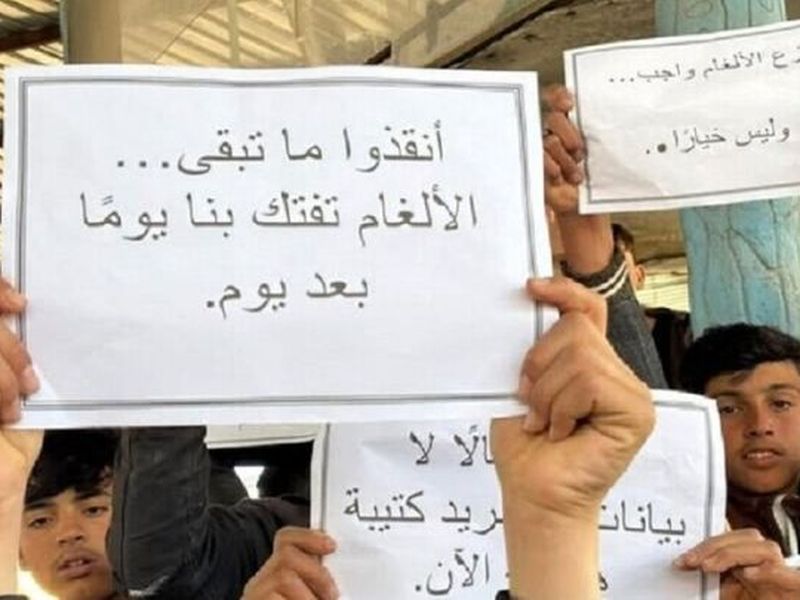 أنقذوا ما تبقى...
الألغام تفتك بنا يومًا
بعد يوم.
الألغام واجب...
وليس خيارًا..
لا
كتيبة
الآن.